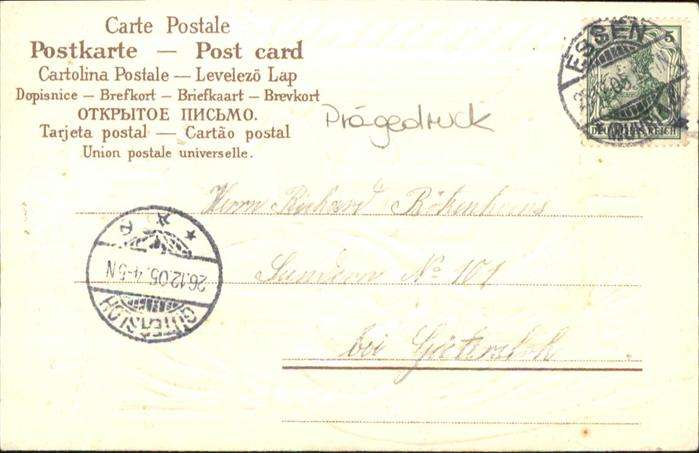 Carte Postale
Postkarte — Post card
Cartolina Postale — Levelező Lap
Dopisnice — Brefkort — Briefkaart — Brevkort
ОТКРЫТОЕ ПИСЬМО.
Tarjeta postal — Cartão postal
Union postale universelle.
Prägedruck
ESSEN
5
DEUTSCHES REICH
Herrn Richard
Sundern No 101
bei Gütersloh
GÜTERSLOH
26.12.05. 4-5 N